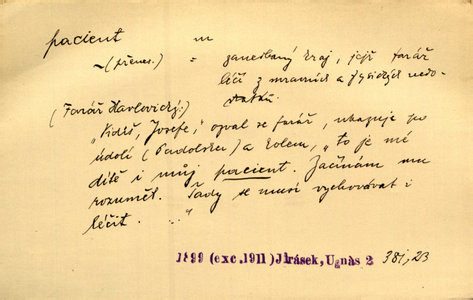 pacient m
~ (přenes.) = zanedbaný kraj, jejž farář
léčí z mravních a fysických nedo-
statků.
(Farář Havlovický:)
"Vidíš, Josefe," ozval se farář, ukazuje po
údolí (Padolsku) a kolem, "to je mé
dítě i můj pacient. Začínám mu
rozuměti. Tady se musí vychovávat i
léčit. ..."
1899 (exc. 1911) Jirásek, U nás 2 381, 23